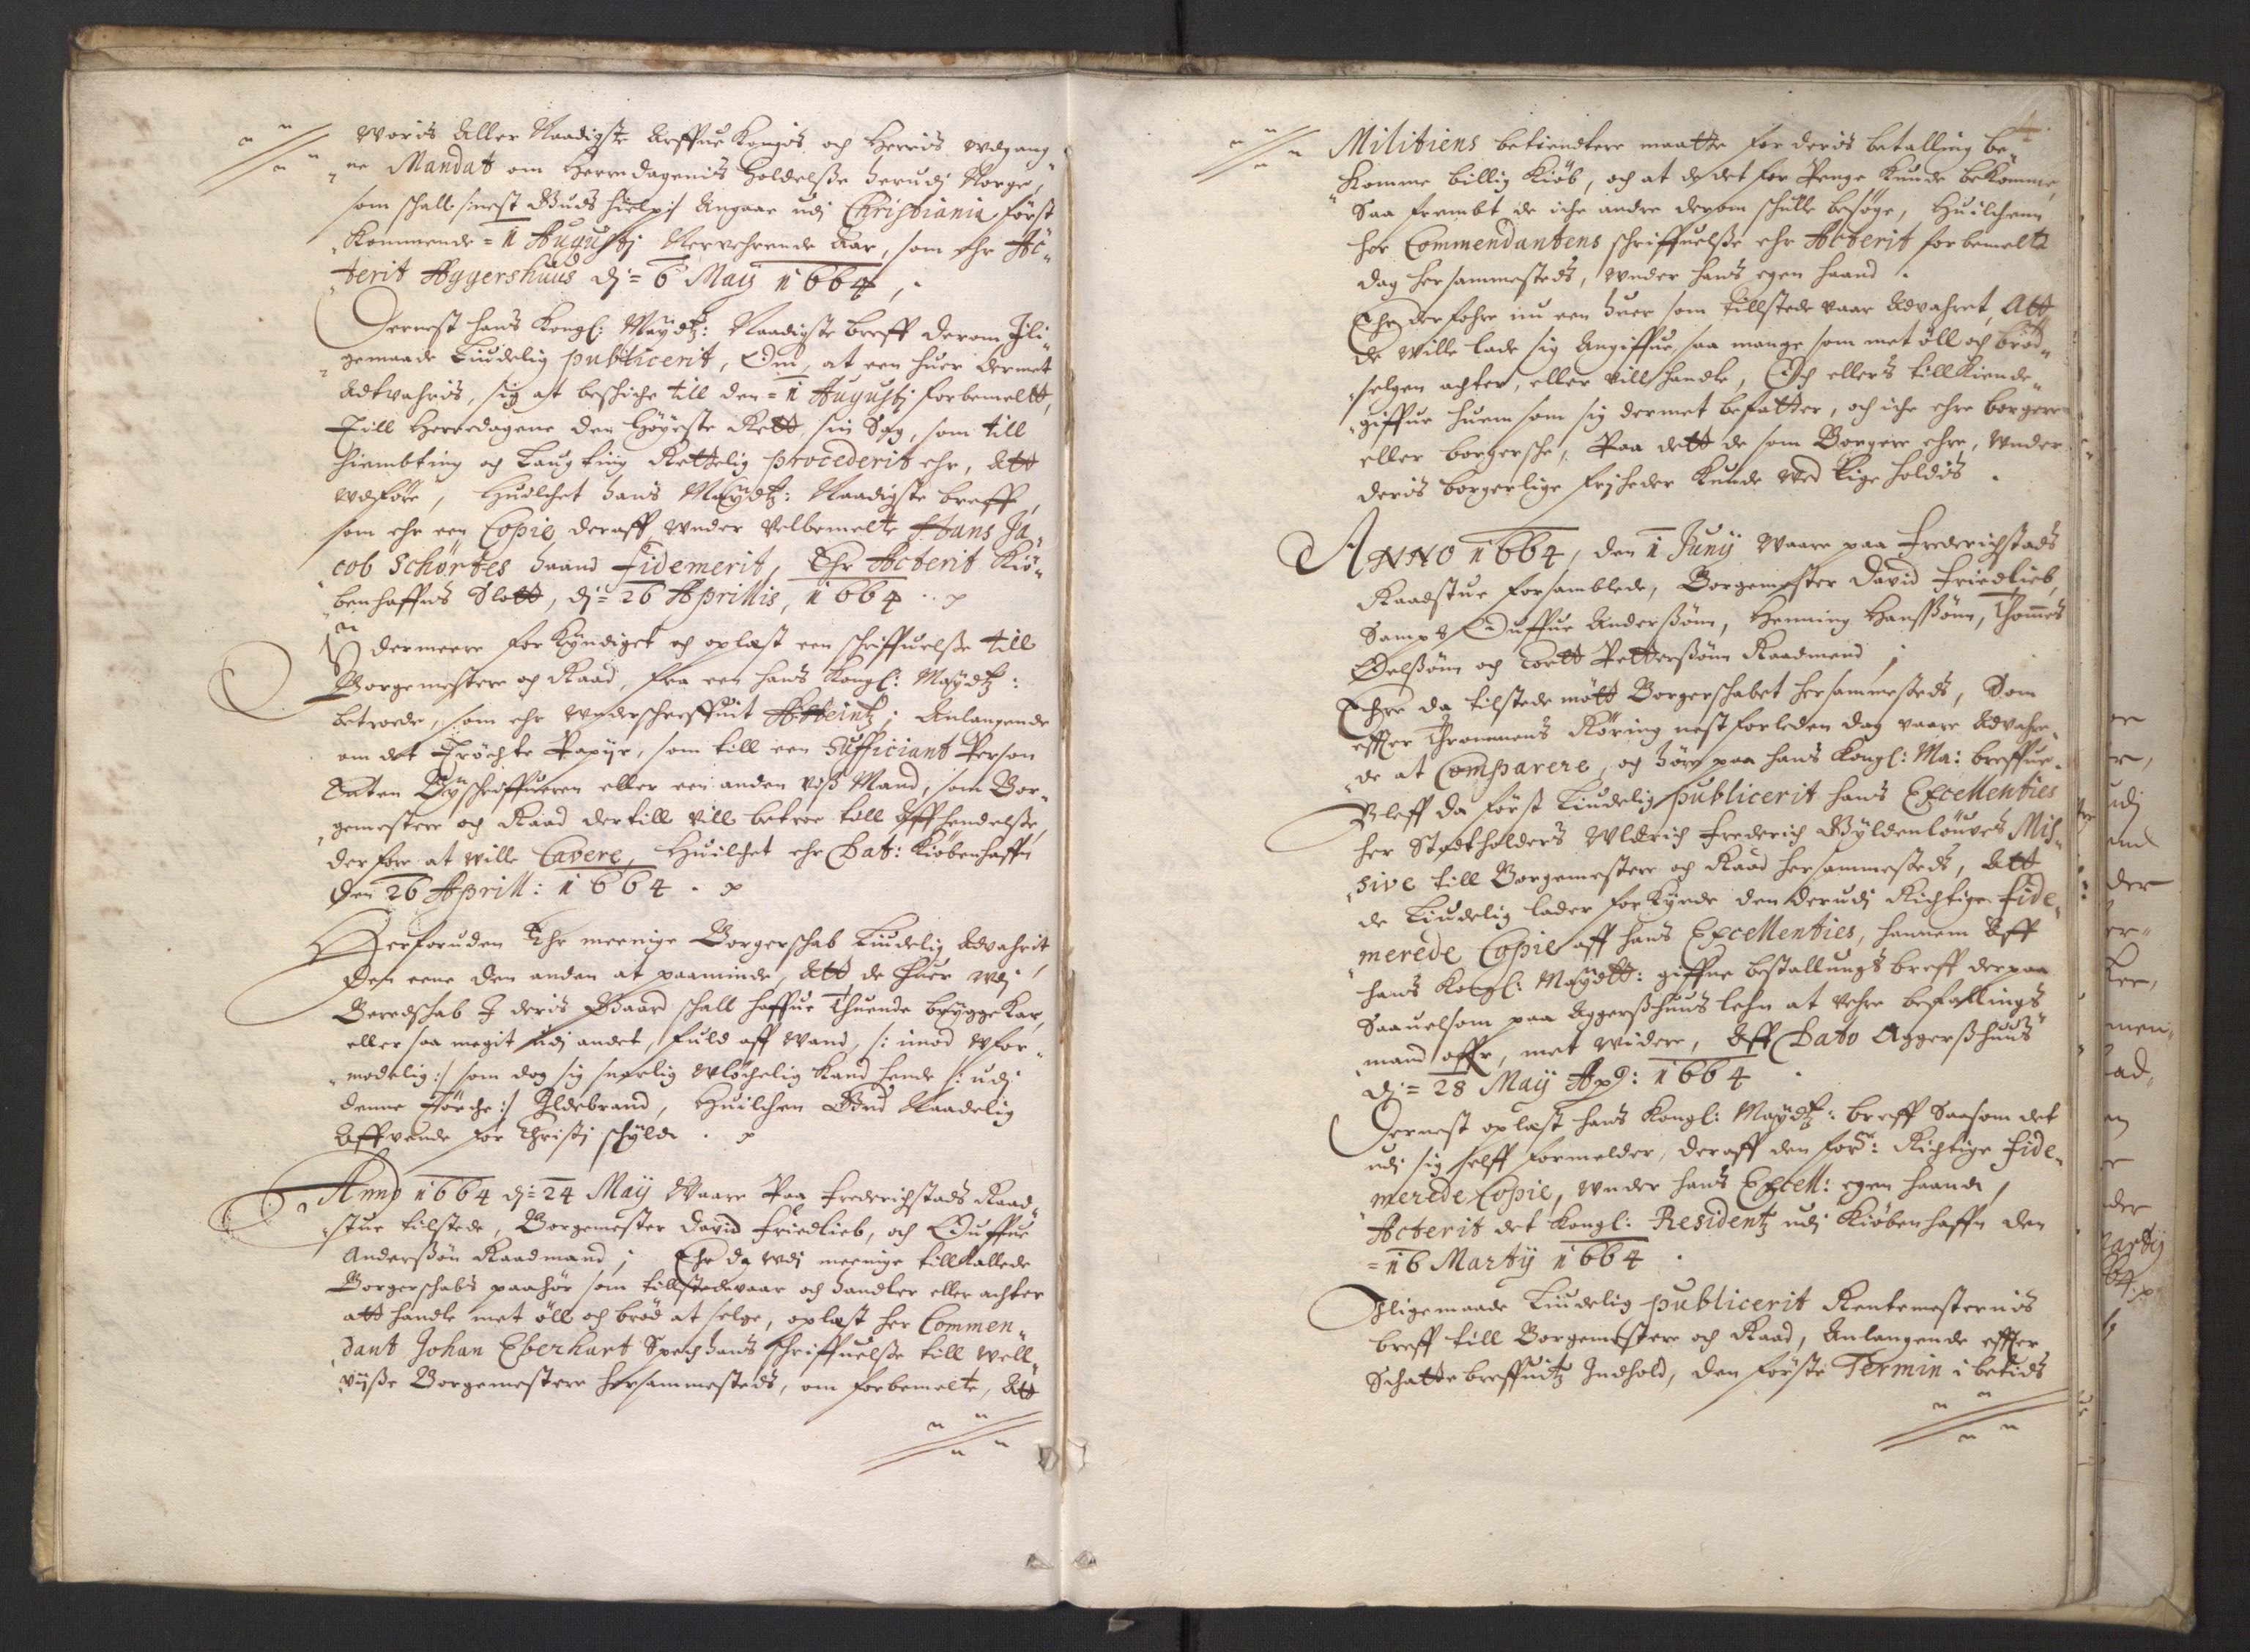 Woris Aller Naadigste Arffue Kongis och Herris wdgang
ne Mandat om Herredagenis Holdelsse herudj Norge,
som schall /nest Guds hielp/ Angaae udj Christiania först
Kommende = 1 Augustj Nerverende Aar, som ehr Ac„
„terit Aggershuus dj = 6 Maij 1664,.
Dernest hans Kongl: Maÿdtz: Naadigste breff derom Ili„
„gemaade Liudelig publicerit, Om, at een huer dermet
Adtvahris, sig at beschiche till den = 1 Augustj forbemeltt,
Till Herredagene den höÿeste Rett sin Sag, som till
hiembting och Laugting Rettelig procederit ehr, Att
wdföre, Huilchet hans Maÿdtz: Naadigste breff,
som ehr een Copie deraff under Velbemelte Hans Ja„
„cob Schörtes haand Fidemerit, Ehr Acterit Kiö„
„benhaffns Slott, dj = 26 Aprillis, 1664..
End dermeere forkyndiget och oplæst een schriffuelsse till
Borgemestere och Raad, fra een hans Kongl: Maÿdtz:
betroede, som ehr underschreffuit; Anlangende
om det Tröchte Papÿr, som till een Sufficiant Person
Saten Bÿschriffueren eller een anden viss Mand, som Bor„
„gemestere och Raad dertill vill betroe till Affhendelsse,
derfore at wille Cavere, Huilchet ehr Dat: Kiöbenhaffn
den 26 Aprill: 1664.
Herforuden Ehr meenige Borgerschab Liudelig Advahrit,
den eene den anden at paaminde, Att de huer udj
Beredschab I deris Gaard schall haffue Thuende brÿggekar,
eller saa megit udj andet, fuld aff Wand, /: imod ufor„
„modelig :/ som dog sig snarlig Ulöchelig kand hende /: udj
denne Törche :/ Ildebrand, Huilchen Gud Naadelig
Affvende for Christj schÿld.
Anno 1664 dj = 24 Maij Waare Paa Frederichstads Raad„
„stue tilstede, Borgemester David Friedlieb, och Ouffue
Anderssön Raadmand; Ehr da udj meenige tillkallede
Borgerschabs paahör som tillstede vaar och handler eller achter
att handle met öll och bröd at selge, oplæst her Commen„
„dant Johan Eberhart Spech hans schriffuelsse till well„
„vÿsse Borgemestere hersammesteds, om forbemelte, Att
4.
Militiens betiendtere maatte for deris betalling be„
„komme billig Kiöb, och at de det for Penge kunde bekomme,
Saa frembt de iche andre derom schulle besöge, Huilchenn
her Commendantens schriffuelsse ehr Acterit forbemeltt
dag hersammesteds, under hans egen haand.
Ehr derfohre nu een huer som tillstede vaar Advahret, Att
de wille lade sig Angiffue, saa mange som met öll och bröd„
„selgen achter, eller vill handle, Och ellers tillkiende„
„giffue huem som sig dermet befatter, och iche ehre borgere
eller borgersche, Paa dett de som Borgere ehre, under
deris borgerlige friheder kunde ved lige holdis.
ANNO 1664, den 1 Junÿ Waare paa Frederichstads
Raadstue forsamblede, Borgemester David Friedlieb,
Sampt Ouffue Anderssön, Henning Hanssön, Thommes
Oelssön och Tortt Petterssön Raadmend;
Ehre da tilstede mött Borgerschabet hersammesteds, Som
effter Trommens Röring nest forleden dag vaare Advahre„
„de at Comparere, och höre paa hans Kongl: Ma: breffue.
Bleff da först Liudelig publicerit hans Excellenties
her Stadtholders Ulderich Frederich Gÿldenlöuves Mis„
„sive till Borgemestere och Raad hersammesteds, Att
de Liudelig lader forkÿnde den derudj Richtige Fide„
„merede Copie aff hans Excellenties, hannem Aff
hans Kongl: Maÿdtt: giffne bestallungs breff derpaa
Saauelsom paa Aggersshuus lehn at vehre befallings„
„mand offr, met widere, Aff Dato Aggersshuus
dj = 28 Maij Apo: 1664.
Dernest oplæst hans Kongl: Maÿdtz: breff Saasom det
udj sig selff formelder, deraff den for: Richtige Fide„
„merede Copie, under hans Excell: egen haand,
Acterit det Kongl: Residentz udj Kiöbenhaffn den
= 16 Martÿ 1664.
Iligemaade Liudelig publicerit Rentemesternis
breff till Borgemestere och Raad, Anlangende effter
Schattebreffuitz Indhold, den förste Termin i betids